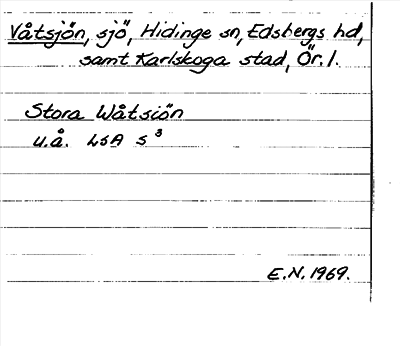 Våtsjön, sjö, Hidinge sn, Edsbergs hd,
samt Karlskoga stad, Ör. l.
Stora Wåtsiön
u.å. LSA S³
E.N. 1969.